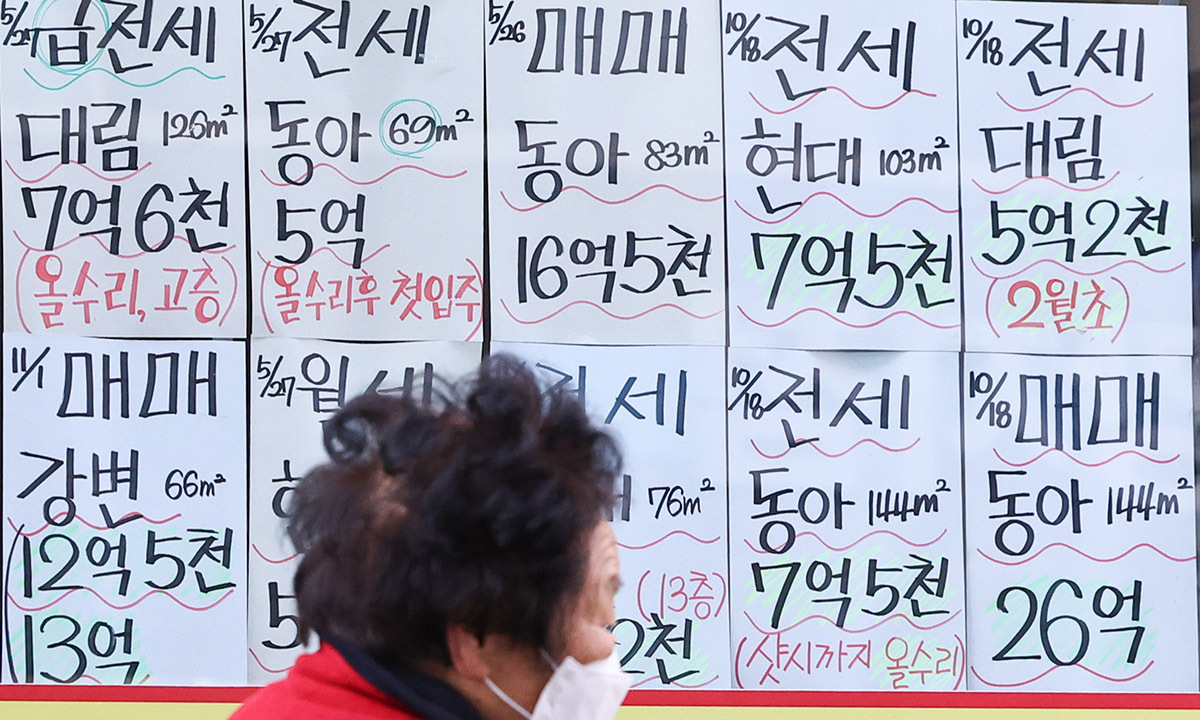 5/27 급전세
대림 126m²
7억 6천
(올수리, 고층)
5/27 전세
동아 69m²
5억
(올수리후 첫입주)
5/26 매매
동아 83m²
16억 5천
10/18 전세
현대 103m²
7억 5천
10/18 전세
대림
5억 2천
(2월초)
11/1 매매
강변 66m²
12억 5천
13억
5/27 월세
5
전세
76m²
(13층)
2천
10/18 전세
동아 144m²
7억 5천
(샷시까지 올수리)
10/18 매매
동아 144m²
26억